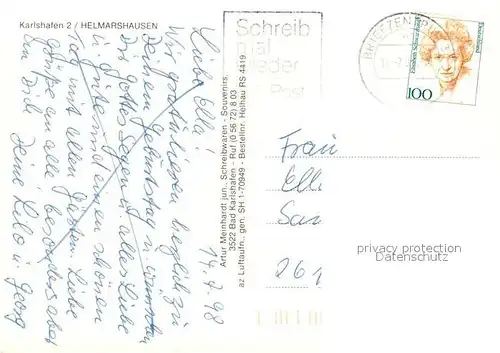 Karlshafen 2 / HELMARSHAUSEN
14.7.98
Liebe Ella!
Wir gratulieren herzlich zu
Deinem Geburtstag u. wünschen
Dir Gottes Segen u. alles Liebe
u. Gute und einen schönen
Tag mit allen Gästen. Liebe
Grüße an alle besonders aber
an Dich Deine Lilo u. Georg
Artur Meinhardt jun., Schreibwaren - Souvenirs,
3522 Bad Karlshafen - Ruf (0 56 72) 8 03
az Luftaufn., gen. SH 1-70949 - Bestellnr. Helhau RS 4419
Schreib
mal
wieder
Post
BRIEFZENTR
Deutschland
100
Frau
Ell
San
261
privacy protection
Datenschutz